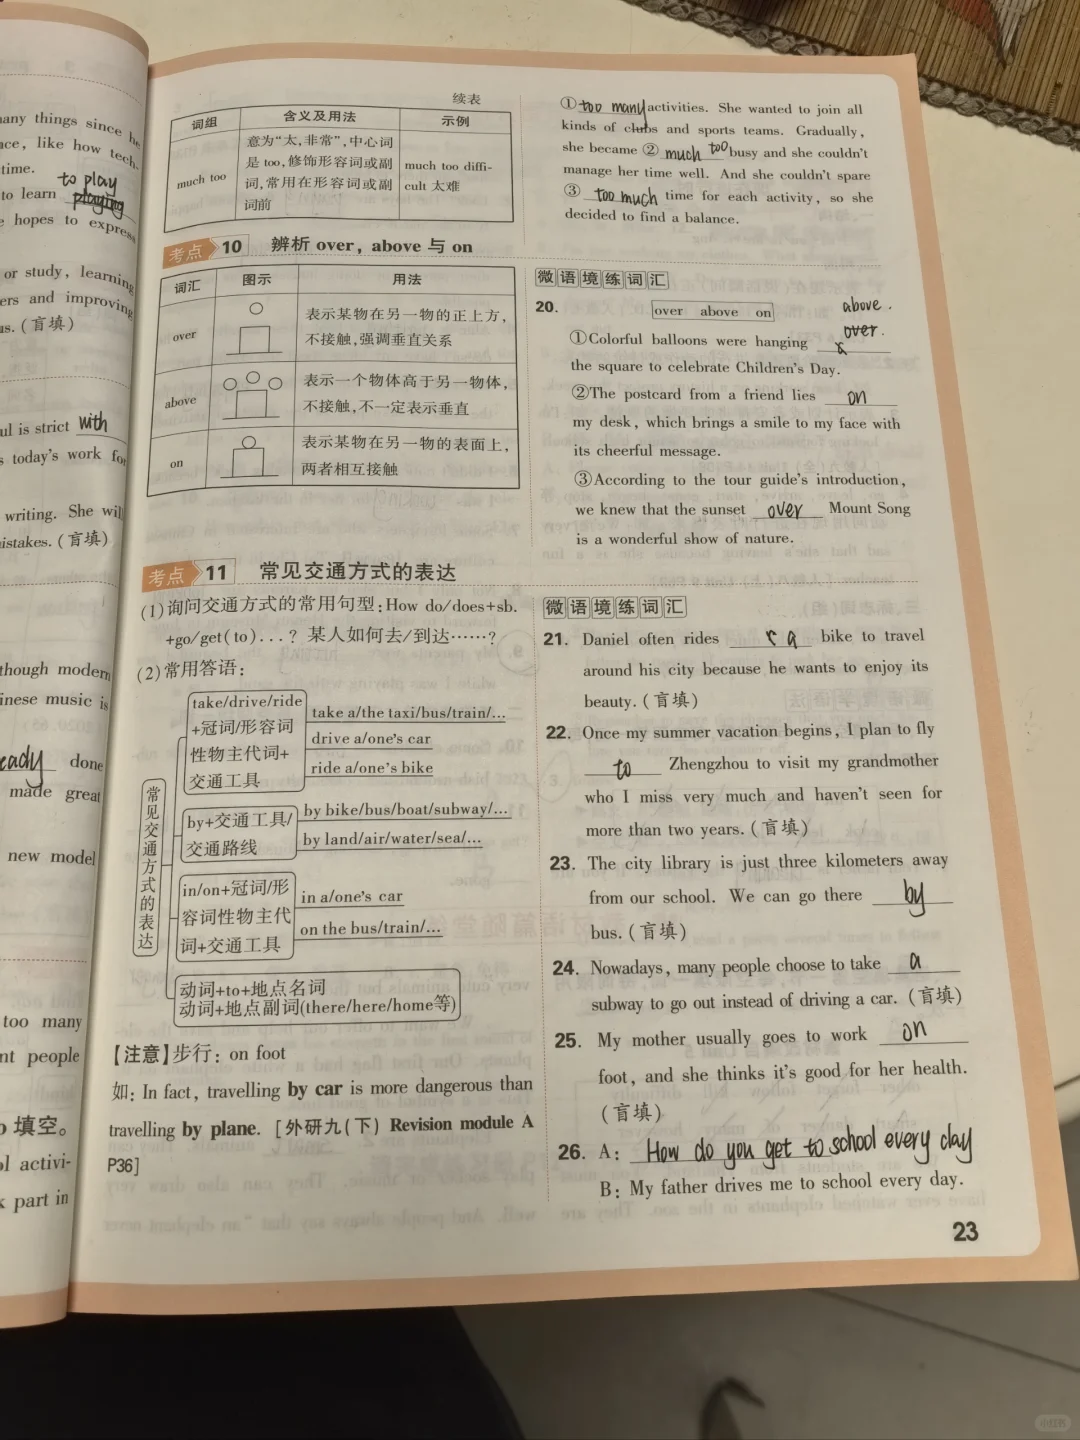 any things since he
nce, like how tech-
time.
to play
to learn playing
e hopes to express
or study, learning
ers and improving
us. (盲填)
ul is strict with
s today's work for
writing. She will
istakes. (盲填)
though modern
inese music is
eady done
made great
new model
too many
nt people
o 填空。
ol activi-
k part in
续表
词组 含义及用法 示例
much too
意为“太,非常”,中心词
是 too,修饰形容词或副
词,常用在形容词或副
词前
much too diffi-
cult 太难
考点 10 辨析 over, above 与 on
词汇 图示 用法
over
表示某物在另一物的正上方,
不接触,强调垂直关系
above
表示一个物体高于另一物体,
不接触,不一定表示垂直
on
表示某物在另一物的表面上,
两者相互接触
① too many activities. She wanted to join all
kinds of clubs and sports teams. Gradually,
she became ② much too busy and she couldn't
manage her time well. And she couldn't spare
③ too much time for each activity, so she
decided to find a balance.
微语境练词汇
20. over above on above.
①Colorful balloons were hanging over.
the square to celebrate Children's Day.
②The postcard from a friend lies on
my desk, which brings a smile to my face with
its cheerful message.
③According to the tour guide's introduction,
we knew that the sunset over Mount Song
is a wonderful show of nature.
考点 11 常见交通方式的表达
(1)询问交通方式的常用句型:How do/does+sb.
+go/get(to)...? 某人如何去/到达……?
(2)常用答语:
常见交通方式的表达
take/drive/ride
+冠词/形容词
性物主代词+
交通工具
take a/the taxi/bus/train/...
drive a/one's car
ride a/one's bike
by+交通工具/
交通路线
by bike/bus/boat/subway/...
by land/air/water/sea/...
in/on+冠词/形
容词性物主代
词+交通工具
in a/one's car
on the bus/train/...
动词+to+地点名词
动词+地点副词(there/here/home等)
【注意】步行:on foot
如:In fact, travelling by car is more dangerous than
travelling by plane. [外研九(下) Revision module A
P36]
微语境练词汇
21. Daniel often rides a bike to travel
around his city because he wants to enjoy its
beauty. (盲填)
22. Once my summer vacation begins, I plan to fly
to Zhengzhou to visit my grandmother
who I miss very much and haven't seen for
more than two years. (盲填)
23. The city library is just three kilometers away
from our school. We can go there by
bus. (盲填)
24. Nowadays, many people choose to take a
subway to go out instead of driving a car. (盲填)
25. My mother usually goes to work on
foot, and she thinks it's good for her health.
(盲填)
26. A: How do you get to school every day
B: My father drives me to school every day.
23
小红书